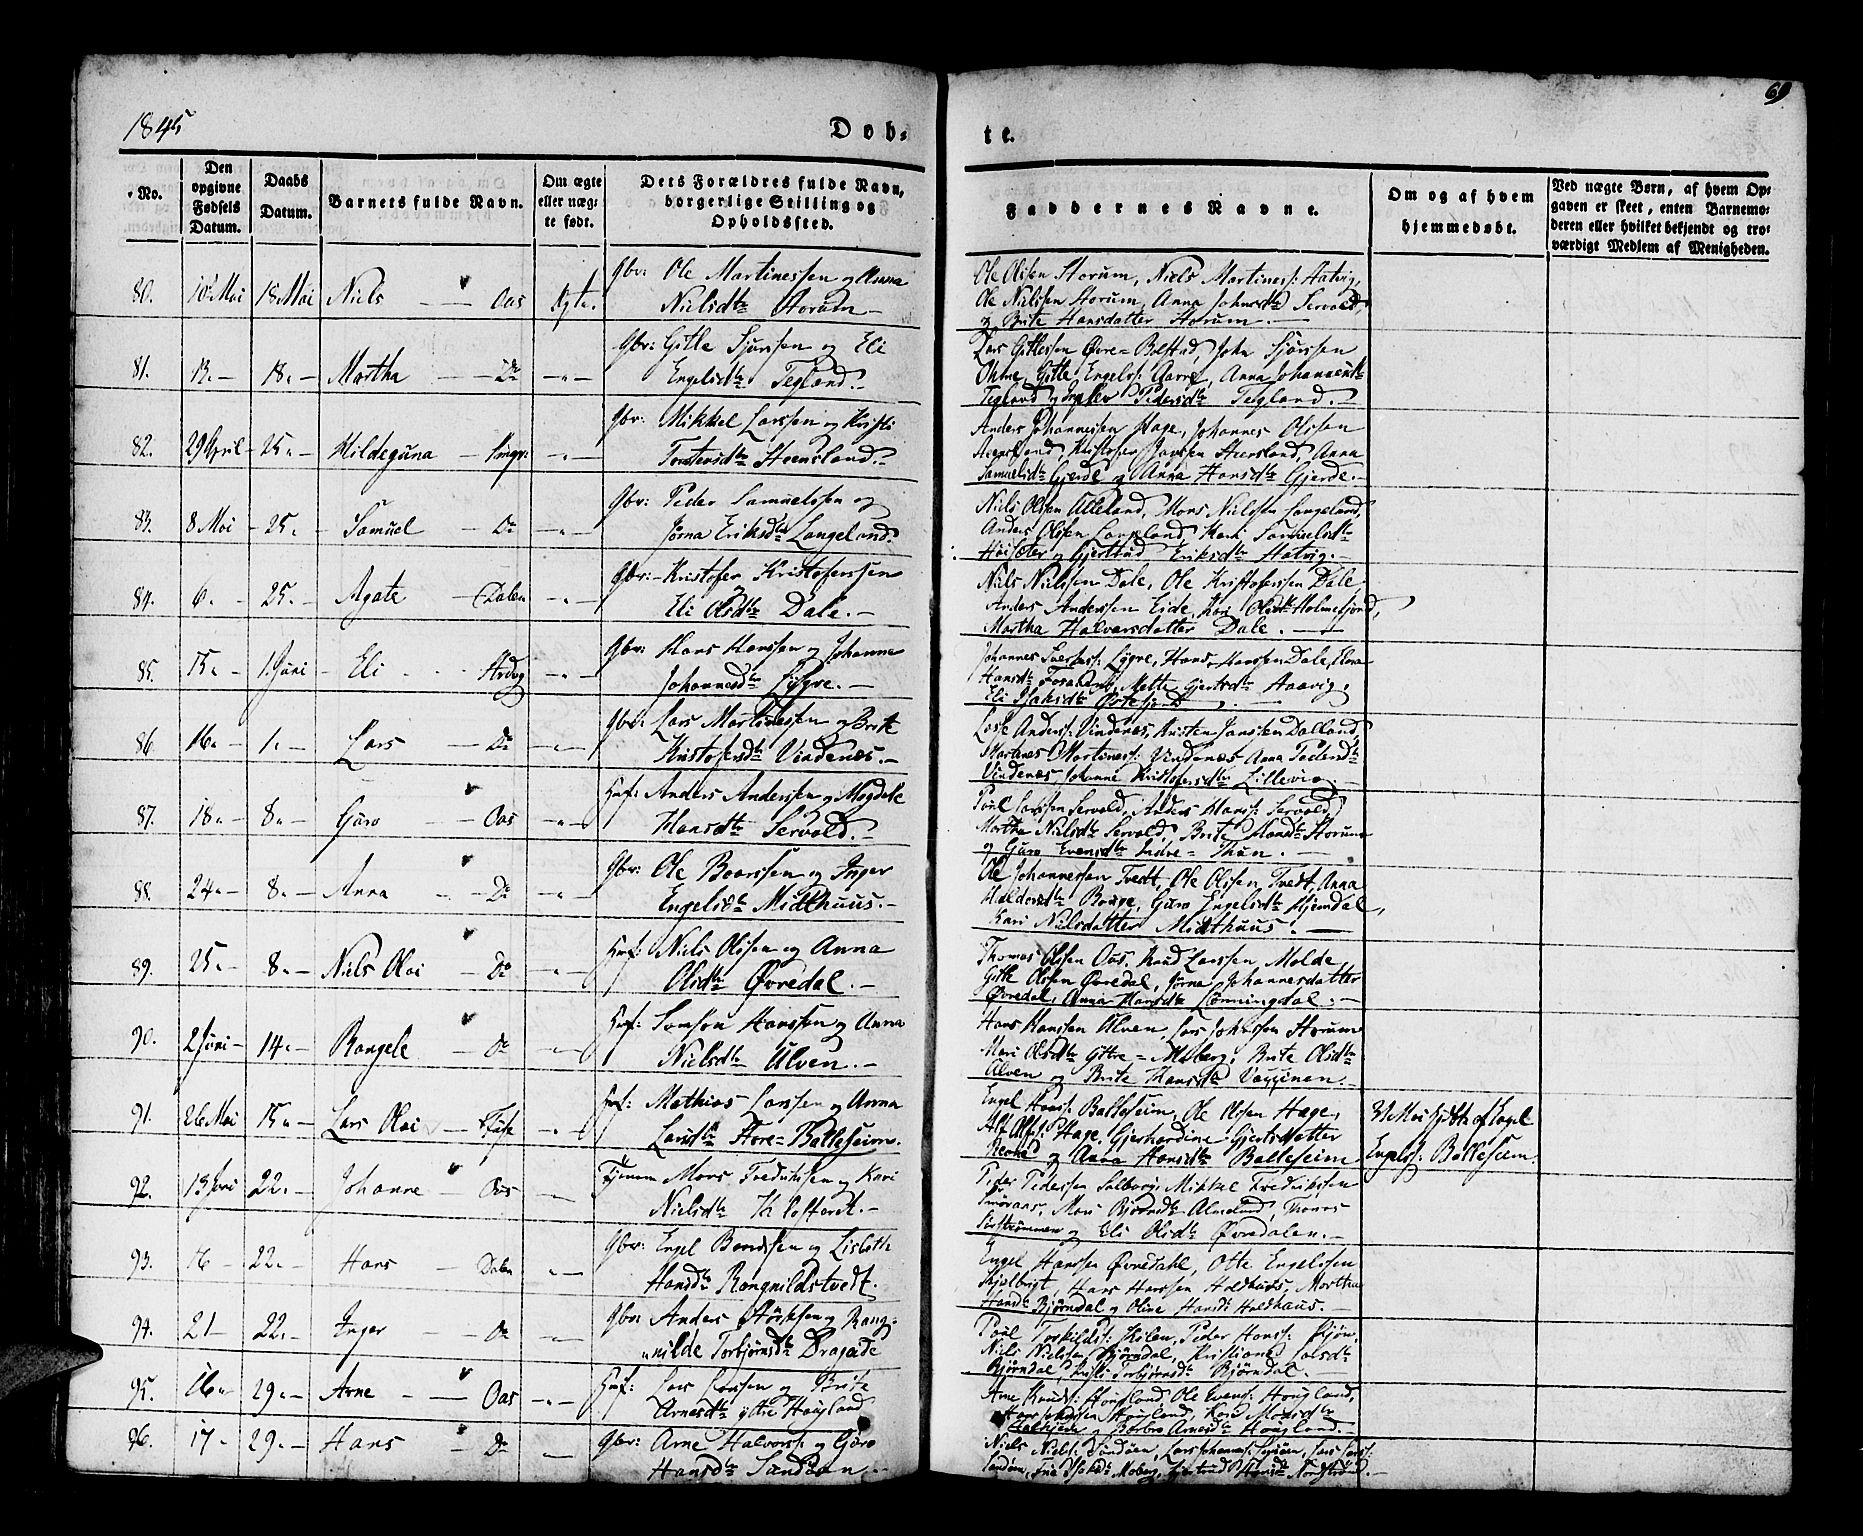 1845
Døb-
te.
69
No.
Den opgivne Fødsels Datum.
Daabs Datum.
Barnets fulde Navn.
Om ægte eller uægte født.
Dets Forældres fulde Navn, borgerlige Stilling og Opholdssted.
Faddernes Navne.
Om og af hvem hjemmedøbt.
Ved uægte Børn, af hvem Opgaven er skeet, enten Barnemoderen eller hvilket bekjendt og troværdigt Medlem af Menigheden.
80. 10 Mai 18 Mai Niels — Oos Ægte. Gbr: Ole Martinessen og Anna
Nielsdtr Horum —
Ole Olsen Horum, Niels Martiness: Hatvig,
Ole Nielsen Horum, Anna Johnsdtr Servold,
og Brite Hansdatter Horum. —
81. 13. — 18. — Martha — Do — " — Gbr: Gitle Sjursen og Eli
Engelsdtr Tegland. —
Lars Gitlessen Øvre=Bolstad, John Sjursen
Gitle Engels: Anna Johannesdtr
Tegland og Pedersdtr Tegland. —
82. 29 April 25. — Hildeguna — — " — Gbr: Mikkel Larssen og Kristi
Torstensdtr Steensland. —
Anders Johannessen Hage, Johannes Olsen
Kristofer Jansen Anna
Samuelsdtr Gjerde og Anna Hansdtr Gjerde. —
83. 8 Mai — 25. — Samuel Do — " — Gbr: Peder Samuelssen og
Jørna Eriksdtr Langeland.
Niels Olsen Alleland, Mons Nielsen Langeland,
Anders Olsen Kari Samuelsdtr
og Gjertrud Eriksdtr Hatvig. —
84. 6. — 25. — Agate — Dalen — " — Gbr: — Kristofer Kristoferssen
Eli Olsdtr Dale. —
Niels Nielsen Dale, Ole Kristoferssen Dale
Anders Anderssen Eide, Kari Olsdtr Holmefjord,
Martha Halvorsdatter Dale. —
85. 15. — 1. Juni — Eli — " — Gbr: Hans Hanssen og Johanne
Johannesdtr Lygre. —
Johannes Lygre, Hans Hanssen Dale,
Hansdtr Mette Gjertsdtr Aavig,
Eli Isaksdtr
86. 16. — 1. — Lars — Do — " — Gbr: Lars Martinessen og Brite
Kristofersdtr Vindenæs. —
Anders: Vindenæs, Kristen Jansen Dalland,
Martines Martiness: Vindenæs Anna Pedersdtr
Vindenæs, Johanne Kristofersdtr Lillevig. —
87. 18. — 8. — Guro Oos — " — Huf: Anders Anderssen og Magdele
Hansdtr Servold. —
Poul Larssen Servold, Anders Hans: Servold,
Martha Nielsdtr Servold, Brite Hansdtr Horum
og Guro Evensdtr Indre=Thun. —
88. 24. — 8. — Anna — Do — " — Gbr: Ole Baarssen og Inger
Engelsdtr Midthuus. —
Ole Johannessen Tvedt, Ole Olssen Tvedt, Anna
Haldorsdtr Borge, Guro Engelsdtr Hjemdal,
Kari Nielsdatter Midthuus. —
89. 25. — 8. — Niels Olai — Do — " — Huf: Niels Olssen og Anna
Olsdtr Øvredal. —
Thomas Olsen Oos, Knud Larssen Molde,
Gitle Olsen Øvredal, Jørna Johannesdatter
Øvredal, Anna Hansdtr Lønningdal. —
90. 2 Juni — 14. — Rangele — Do — " — Huf: Samson Hanssen og Anna
Nielsdtr Ulven. —
Hans Hanssen Ulven, Lars Johnssen Horum
Mari Olsdtr Yttre=Moberg, Brite Olsdtr
Ulven og Brite Hansdtr
91. 26 Mai 15. — Lars Olai — Fuse — " — Huf: Mathias Larssen og Anna
Larsdtr Store=Balleseim.
Engel Hans: Balleseim, Ole Olsen Hage,
Alf Alfs: Hage, Gjerhardine Gjertsdatter
og Anna Hansdtr Balleseim
31 Mai hjdbt af Engel
Engels: Balleseim.
92. 13 Juni 22. — Johanne — Oos — Mons Fredrikssen og Kari
Nielsdtr Klosteret. —
Peder Pederssen Solberg, Mikkel Fredrikssen
Mari Bjørnsdtr Thomas
og Eli Olsdtr Øvredalen. —
93. 16 — 22. — Hans — Dalen — " — Gbr: Engel Bendssen og Lisbeth
Hansdtr Rongnildstvedt.
Engel Hanssen Øvredahl, Otte Engelssen
Hans Hanssen Holdhuus, Martha
Hansdtr Bjørndal og Oline Hansdtr Holdhuus. —
94. 21 — 22. — Inger — Do — Gbr: Anders og Rang-
nilde Torbjørnsdtr
Poul Torkilds: Skilen, Peder Hans: Bjørn.
Niels Nielssen Bjørndal, Kristiane
Bjørndal, Kristi Torbjørnsdtr Bjørndal.
95. 16. — 29. — Arne — Oos — " — Huf: Lars Larssen og Brite
Arnesdtr ytre Hougland
Arne Knuds: Hougland, Ole Evens: Hougland,
Hougland, Kari Monsdtr
og Barbro Arnesdtr Hougland. —
96. 17 — 29. — Hans — Do — " — Gbr: Arne Halvors: og Guro
Hansdtr Sandøen. —
Niels Niels: Sandøen, Lars Johannes: Lars Lars:
Sandøen, Moberg, Gjertrud Hansdtr Nordstrøno. —